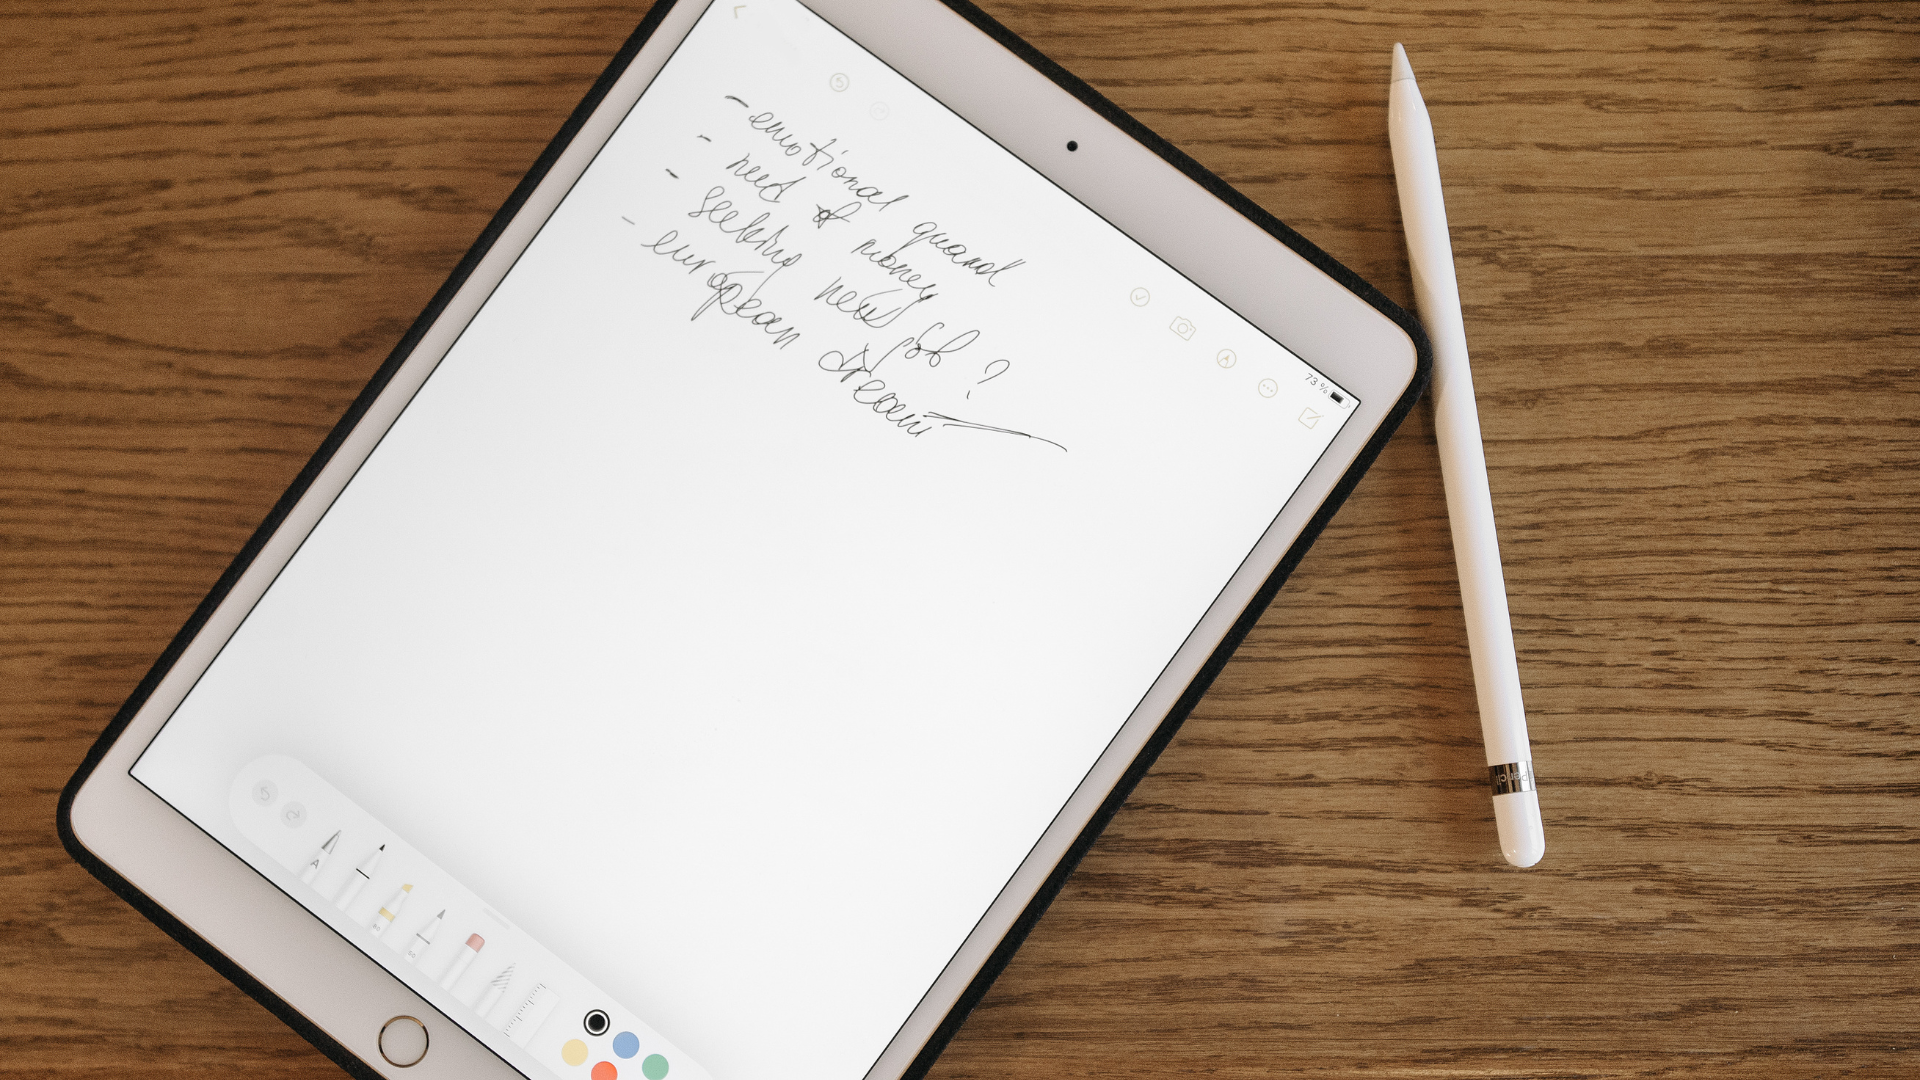 - emotional quarrel
- need of money
- seeking new job ?
- european dream
73 %
Pencil